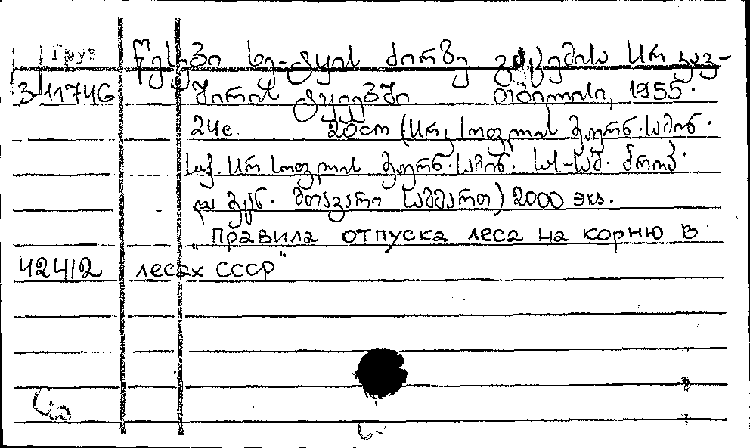 Груз წესები ხე-ტყის ძირზე გაცემისა სსრ კავ-
311746 შირის ტყეებში თბილისი, 1955.
24с. 20cm (სსრკ სოფლის მეურნ. სამინ.
საქ. სსრ სოფლის მეურნ. სამინ.
და მთავარი სამმართ) 2000 экз.
"Правила отпуска леса на корню в
424/2 лесах СССР"